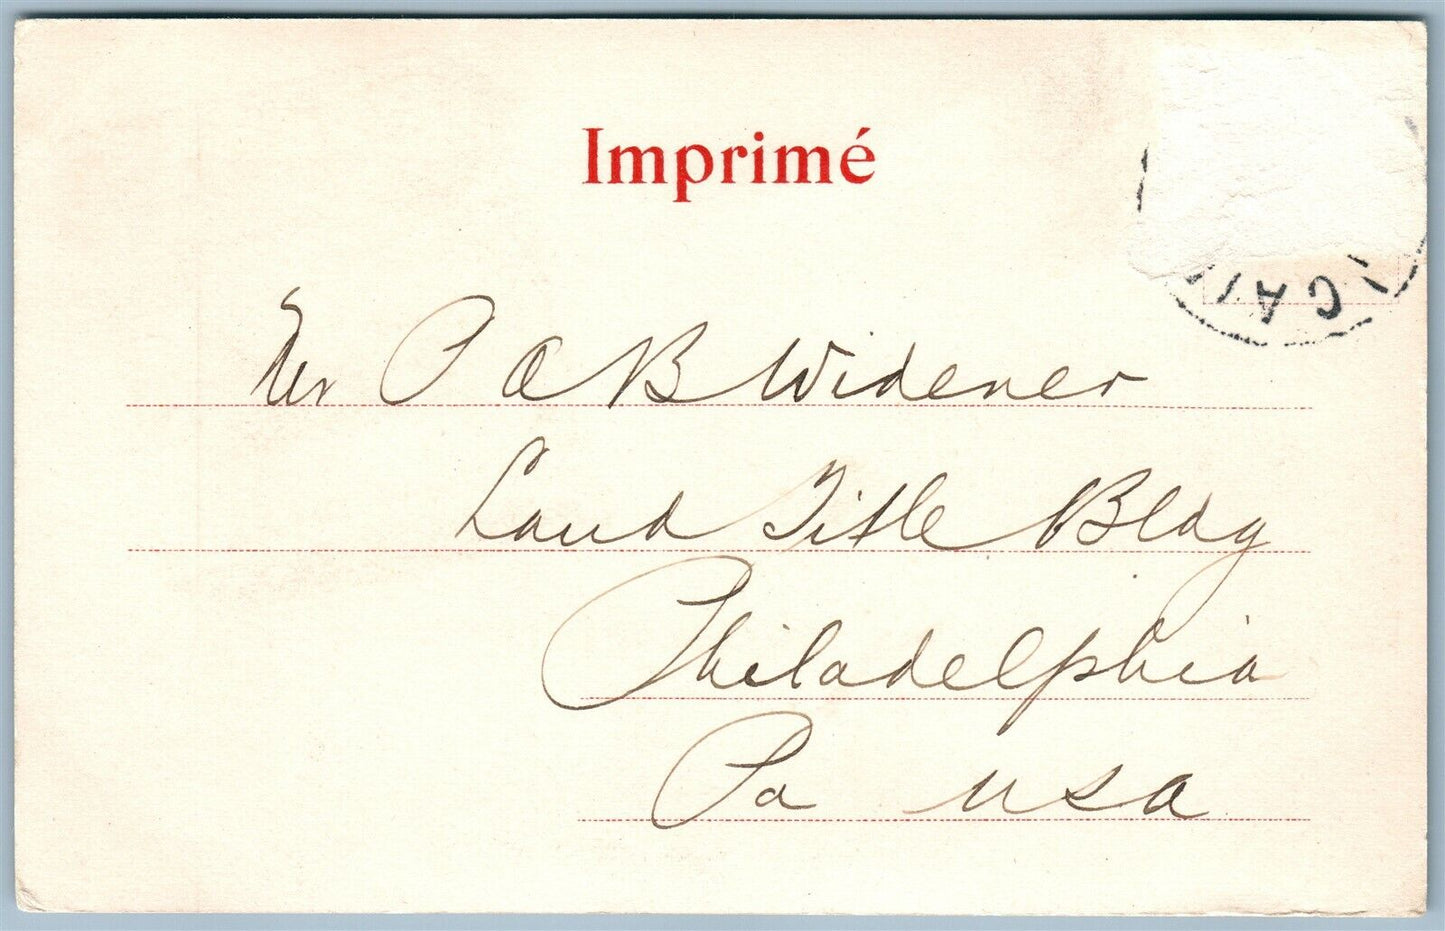 Imprimé
CAI
Mr P A B Widener
Land Title Bldg
Philadelphia
Pa USA